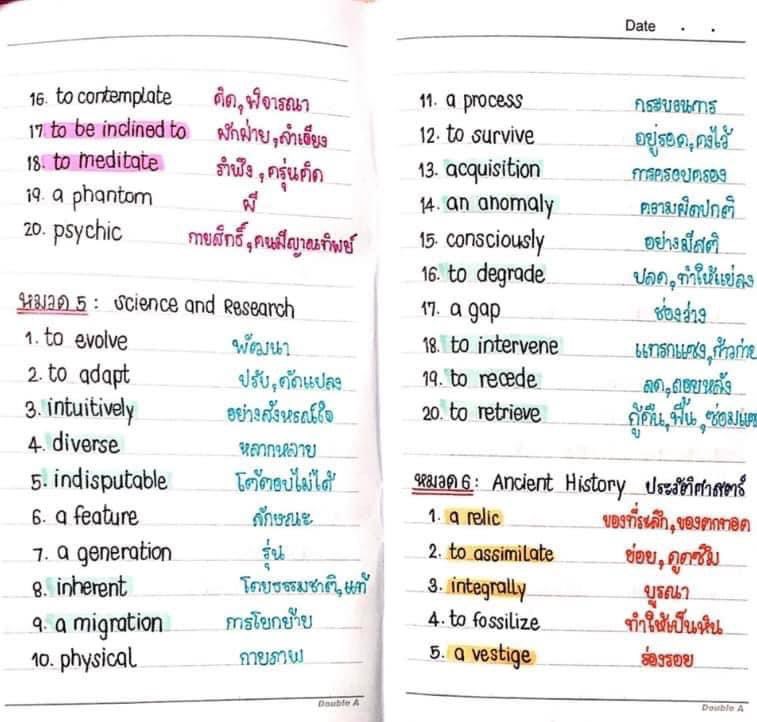 16. to contemplate คิด,พิจารณา
17 to be inclined to ฝักฝ่าย,ลำเอียง
18. to meditate รำพึง,ครุ่นคิด
19. a phantom ผี
20. psychic กายสิทธิ์,คนมีญาณทิพย์
หมวด 5 : Science and Research
1. to evolve พัฒนา
2. to adapt ปรับ,ดัดแปลง
3. intuitively อย่างสังหรณ์ใจ
4. diverse หลากหลาย
5. indisputable โต้ตอบไม่ได้
6. a feature ลักษณะ
7. a generation รุ่น
8. inherent โดยธรรมชาติ,แท้
9. a migration การโยกย้าย
10. physical กายภาพ
Double A
Date . .
11. a process กระบวนการ
12. to survive อยู่รอด,คงไว้
13. acquisition การครอบครอง
14. an anomaly ความผิดปกติ
15. consciously อย่างมีสติ
16. to degrade ปลด,ทำให้แย่ลง
17. a gap ช่องว่าง
18. to intervene แทรกแซง,ก้าวก่าย
19. to recede ลด,ถอยหลัง
20. to retrieve กู้คืน,ฟื้น,ซ่อมแซ
หมวด 6 : Ancient History ประวัติศาสตร์
1. a relic ของที่ระลึก,ของตกทอด
2. to assimilate ย่อย,ดูดซึม
3. integrally บูรณา
4. to fossilize ทำให้เป็นหิน
5. a vestige ร่องรอย
Double A